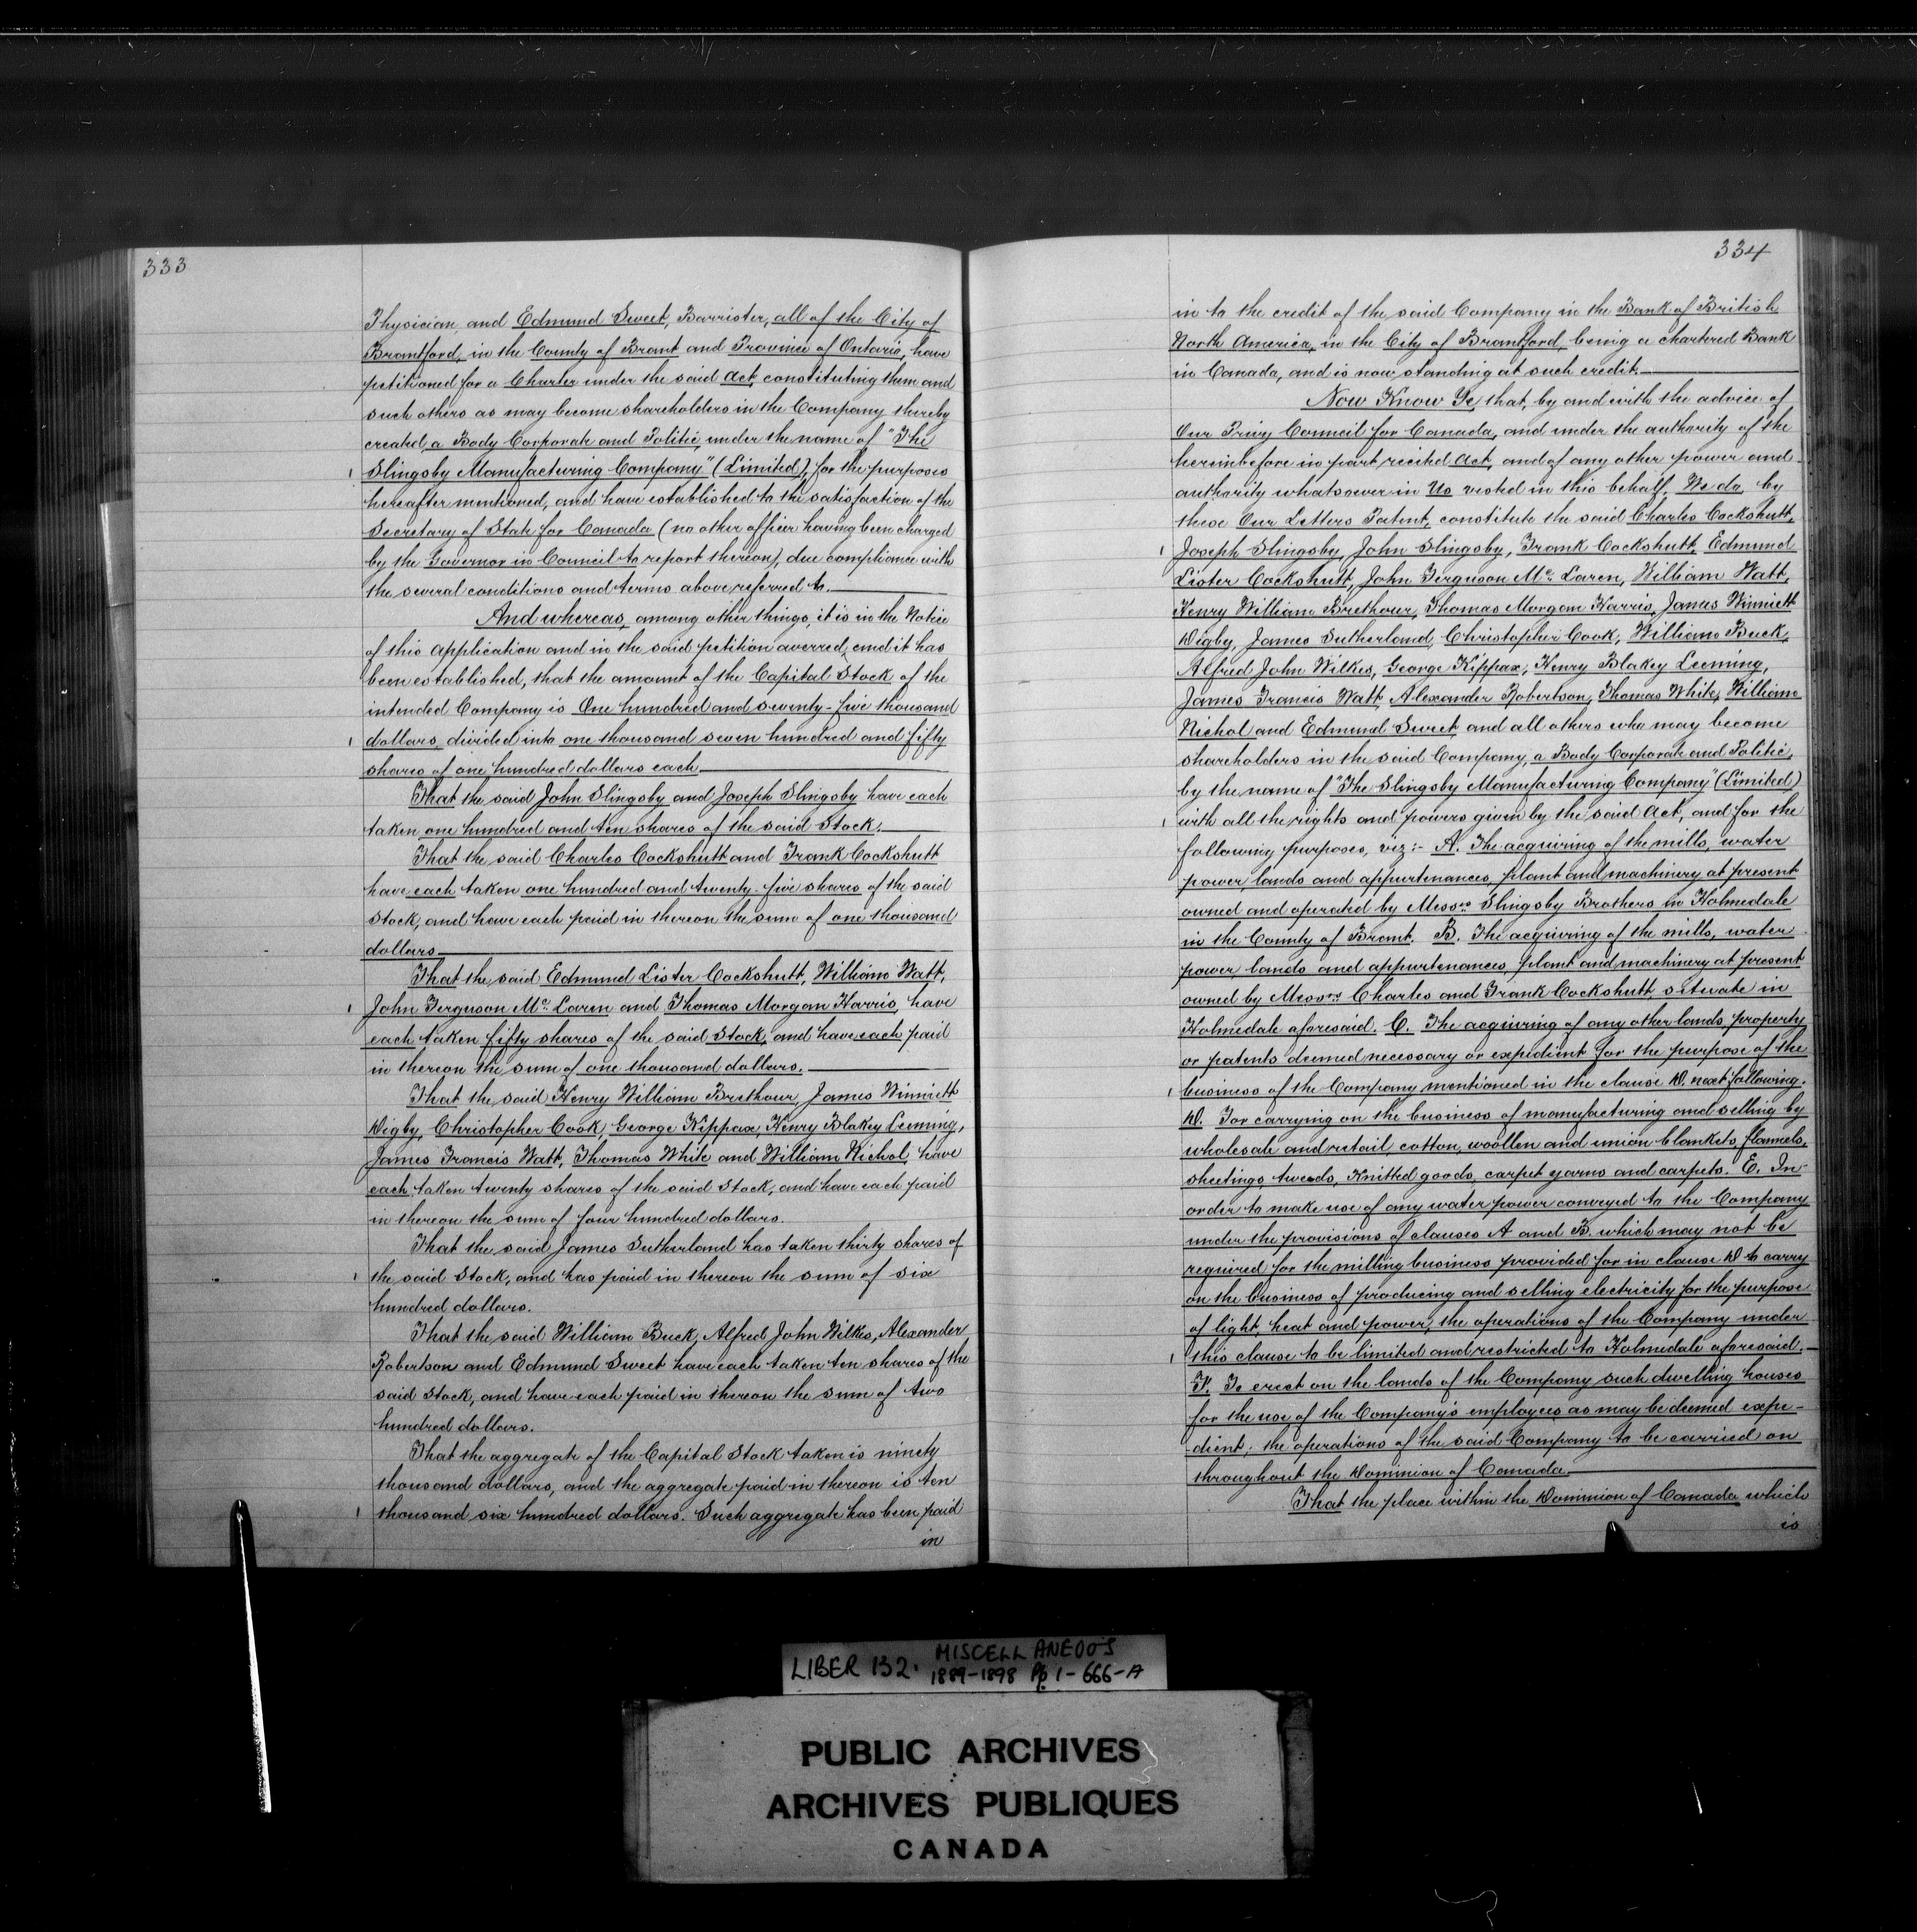 333
Physician, and Edmund Sweet, Barrister, all of the City of
Brantford, in the County of Brant and Province of Ontario, have
petitioned for a Charter under the said Act, constituting them and
such others as may become shareholders in the Company thereby
created, a Body Corporate and Politic, under the name of "The
Slingsby Manufacturing Company" (Limited), for the purposes
hereafter mentioned, and have established to the satisfaction of the
Secretary of State for Canada (no other officer having been charged
by the Governor in Council to report thereon), due compliance with
the several conditions and terms above referred to.
And whereas, among other things, it is in the Notice
of this application and in the said petition averred, and it has
been established, that the amount of the Capital Stock of the
intended Company is One hundred and seventy-five thousand
dollars, divided into one thousand seven hundred and fifty
shares of one hundred dollars each
That the said John Slingsby and Joseph Slingsby have each
taken one hundred and ten shares of the said Stock.
That the said Charles Cockshutt and Frank Cockshutt
have each taken one hundred and twenty-five shares of the said
Stock, and have each paid in thereon the sum of one thousand
dollars
That the said Edmund Lister Cockshutt, William Watt,
John Ferguson Mc Laren and Thomas Morgan Harris, have
each taken fifty shares of the said Stock, and have each paid
in thereon the sum of one thousand dollars.
That the said Henry William Brethour, James Winniett
Digby, Christopher Cook, George Kippax, Henry Blakey Leeming,
James Francis Watt, Thomas White and William Nichol, have
each taken twenty shares of the said Stock, and have each paid
in thereon the sum of four hundred dollars.
That the said James Sutherland has taken thirty shares of
the said Stock, and has paid in thereon the sum of six
hundred dollars.
That the said William Buck, Alfred John Wilkes, Alexander
Robertson and Edmund Sweet have each taken ten shares of the
said Stock, and have each paid in thereon the sum of two
hundred dollars.
That the aggregate of the Capital Stock taken is ninety
thousand dollars, and the aggregate paid in thereon is ten
thousand six hundred dollars. Such aggregate has been paid
in
334
in to the credit of the said Company in the Bank of British
North America, in the City of Brantford, being a chartered Bank
in Canada, and is now standing at such credit.
Now Know Ye, that, by and with the advice of
Our Privy Council for Canada, and under the authority of the
hereinbefore in part recited Act, and of any other power and
authority whatsoever in Us vested in this behalf, We do, by
these Our Letters Patent, constitute the said Charles Cockshutt,
Joseph Slingsby, John Slingsby, Frank Cockshutt, Edmund
Lister Cockshutt, John Ferguson Mc Laren, William Watt,
Henry William Brethour, Thomas Morgan Harris, James Winniett
Digby, James Sutherland, Christopher Cook, William Buck,
Alfred John Wilkes, George Kippax, Henry Blakey Leeming,
James Francis Watt, Alexander Robertson, Thomas White, William
Nichol and Edmund Sweet, and all others who may become
shareholders in the said Company, a Body Corporate and Politic,
by the name of "The Slingsby Manufacturing Company" (Limited)
with all the rights and powers given by the said Act, and for the
following purposes, viz:- A. The acquiring of the mills, water
power, lands and appurtenances, plant and machinery at present
owned and operated by Messrs Slingsby Brothers in Holmedale
in the County of Brant. B. The acquiring of the mills, water
power lands and appurtenances, plant and machinery at present
owned by Messrs Charles and Frank Cockshutt, situate in
Holmedale aforesaid. C. The acquiring of any other lands, property
or patents deemed necessary or expedient for the purpose of the
business of the Company mentioned in the clause D. next following.
D. For carrying on the business of manufacturing and selling by
wholesale and retail, cotton, woollen and union blankets, flannels,
sheetings, tweeds, Knitted goods, carpet yarns and carpets. E. In
order to make use of any water power conveyed to the Company
under the provisions of clauses A and B. which may not be
required for the milling business provided for in clause D to carry
on the business of producing and selling electricity for the purpose
of light, heat and power, the operations of the Company under
this clause to be limited and restricted to Holmedale aforesaid.
F. To erect on the lands of the Company such dwelling houses
for the use of the Company's employees as may be deemed expe-
-dient; the operations of the said Company to be carried on
throughout the Dominion of Canada
That the place within the Dominion of Canada which
is
LIBER 132. MISCELLANEOUS
1889-1898 Pp. 1-666-A
PUBLIC ARCHIVES
ARCHIVES PUBLIQUES
CANADA